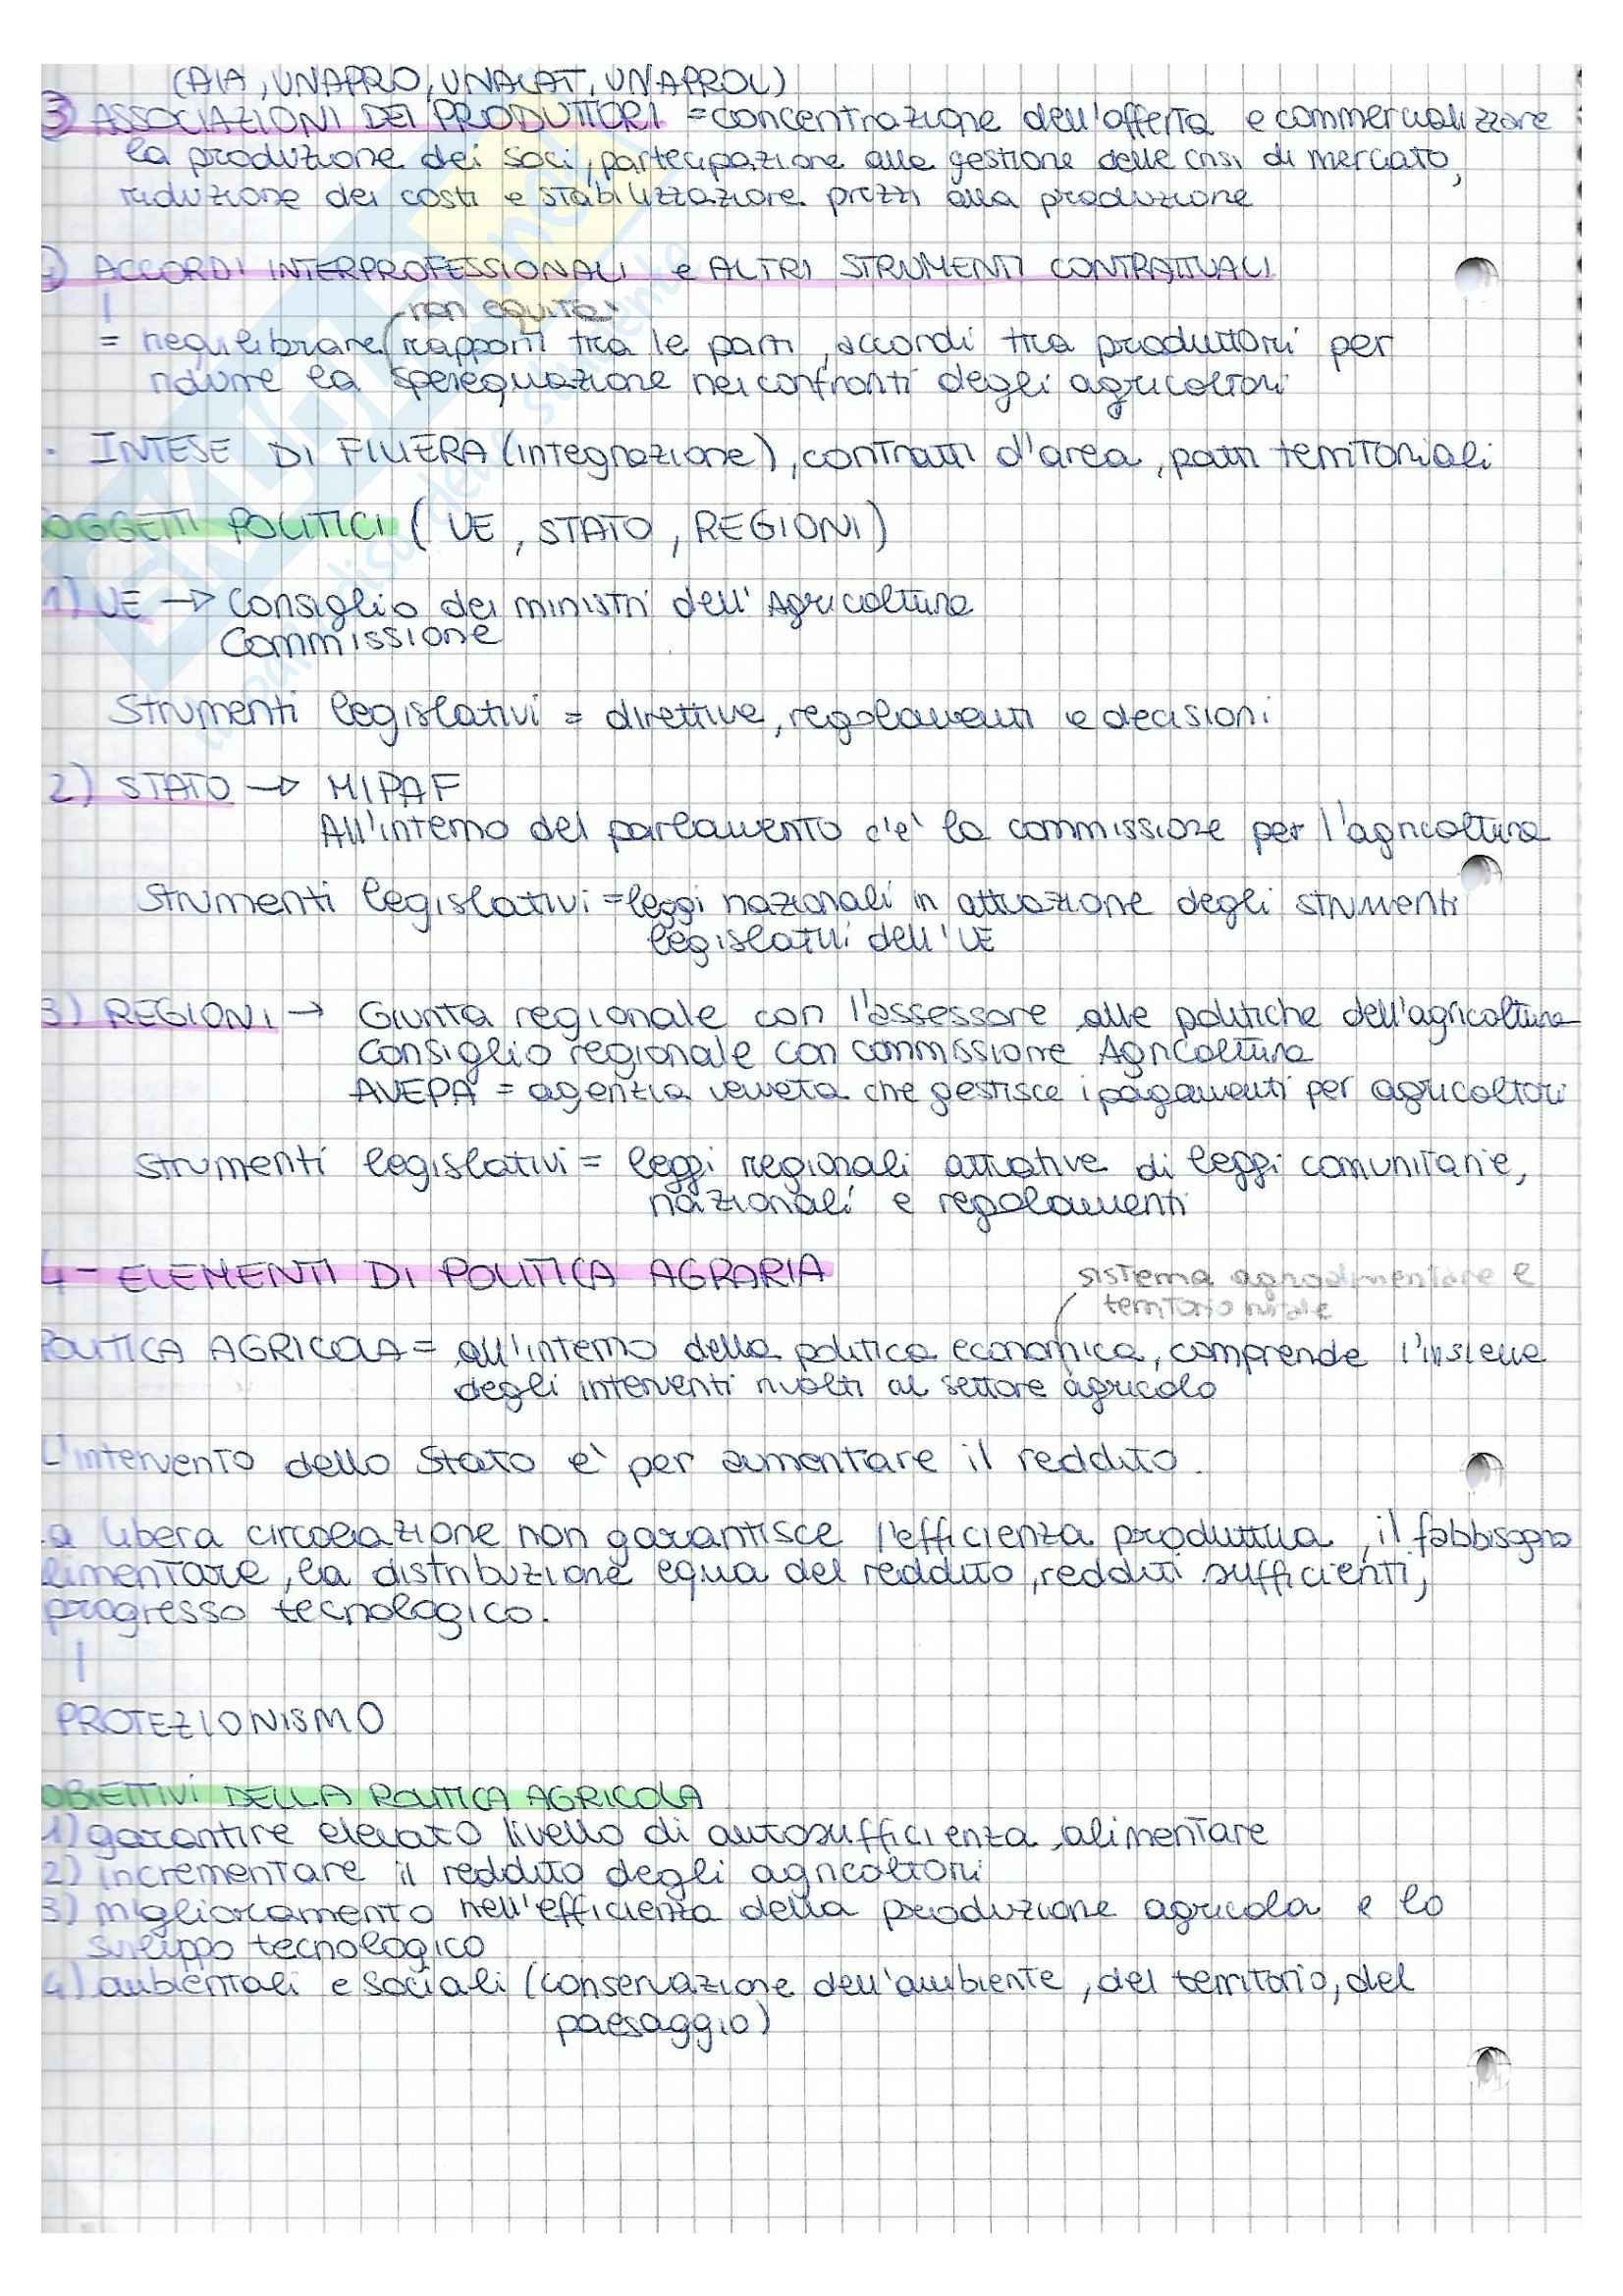 (AIA, UNAPRO, UNALAT, UNAPROL)
3) ASSOCIAZIONI DEI PRODUTTORI = concentrazione dell'offerta e commercializzare
la produzione dei soci, partecipazione alle gestione delle crisi di mercato,
riduzione dei costi e stabilizzazione prezzi alla produzione
4) ACCORDI INTERPROFESSIONALI e ALTRI STRUMENTI CONTRATTUALI
non equità
= riequilibrare rapporti tra le parti, accordi tra produttori per
ridurre la sperequazione nei confronti degli agricoltori
· INTESE DI FILIERA (integrazione), contratti d'area, patti territoriali
SOGGETTI POLITICI (UE, STATO, REGIONI)
1) UE → Consiglio dei ministri dell'Agricoltura
Commissione
Strumenti legislativi = direttive, regolamenti e decisioni
2) STATO → MIPAF
All'interno del parlamento c'è la commissione per l'agricoltura
Strumenti legislativi = leggi nazionali in attuazione degli strumenti
legislativi dell'UE
3) REGIONI → Giunta regionale con l'assessore alle politiche dell'agricoltura
Consiglio regionale con commissione Agricoltura
AVEPA = agenzia veneta che gestisce i pagamenti per agricoltori
Strumenti legislativi = leggi regionali attuative di leggi comunitarie,
nazionali e regolamenti
4 - ELEMENTI DI POLITICA AGRARIA
sistema agroalimentare e
territorio rurale
POLITICA AGRICOLA = all'interno della politica economica, comprende l'insieme
degli interventi rivolti al settore agricolo
L'intervento dello Stato è per aumentare il reddito.
La libera circolazione non garantisce l'efficienza produttiva, il fabbisogno
alimentare, la distribuzione equa del reddito, redditi sufficienti,
progresso tecnologico.
PROTEZIONISMO
OBIETTIVI DELLA POLITICA AGRICOLA
1) garantire elevato livello di autosufficienza alimentare
2) incrementare il reddito degli agricoltori
3) miglioramento nell'efficienza della produzione agricola e lo
sviluppo tecnologico
4) ambientali e sociali (conservazione dell'ambiente, del territorio, del
paesaggio)